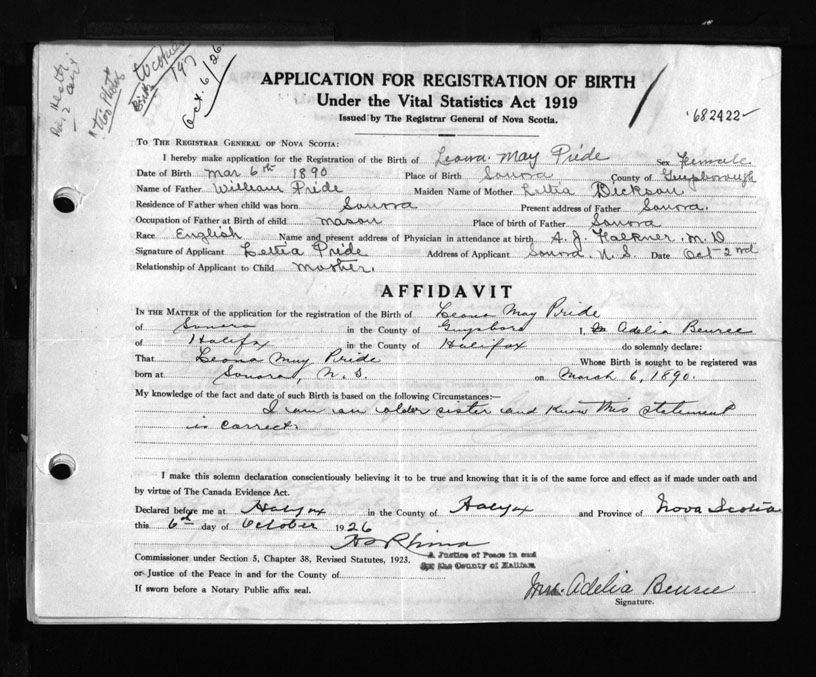 Oct. 6/26
APPLICATION FOR REGISTRATION OF BIRTH
Under the Vital Statistics Act 1919
Issued by The Registrar General of Nova Scotia.
682422
TO THE REGISTRAR GENERAL OF NOVA SCOTIA:
I hereby make application for the Registration of the Birth of Leona May Pride Sex Female
Date of Birth Mar 6th 1890 Place of Birth Sonora County of Guysborough
Name of Father William Pride Maiden Name of Mother Lettia Dickson
Residence of Father when child was born Sonora Present address of Father Sonora.
Occupation of Father at Birth of child mason Place of birth of Father Sonora
Race English Name and present address of Physician in attendance at birth A. J. Falkner. M. D
Signature of Applicant Lettia Pride Address of Applicant Sonora N. S. Date Oct 2nd
Relationship of Applicant to Child Mother.
AFFIDAVIT
IN THE MATTER of the application for the registration of the Birth of Leona May Pride
of Sonora in the County of Guysboro I, Adelia Beuree
of Halifax in the County of Halifax do solemnly declare:
That Leona May Pride Whose Birth is sought to be registered was
born at Sonora, N. S. on March 6, 1890.
My knowledge of the fact and date of such Birth is based on the following Circumstances:—
I am an older sister and know this statement
is correct.
I make this solemn declaration conscientiously believing it to be true and knowing that it is of the same force and effect as if made under oath and
by virtue of The Canada Evidence Act.
Declared before me at Halifax in the County of Halifax and Province of Nova Scotia
this 6th day of October 1926
Commissioner under Section 5, Chapter 38, Revised Statutes, 1923.
A Justice of Peace in and
for the County of Halifax
or Justice of the Peace in and for the County of
If sworn before a Notary Public affix seal.
Mrs. Adelia Beuree
Signature.